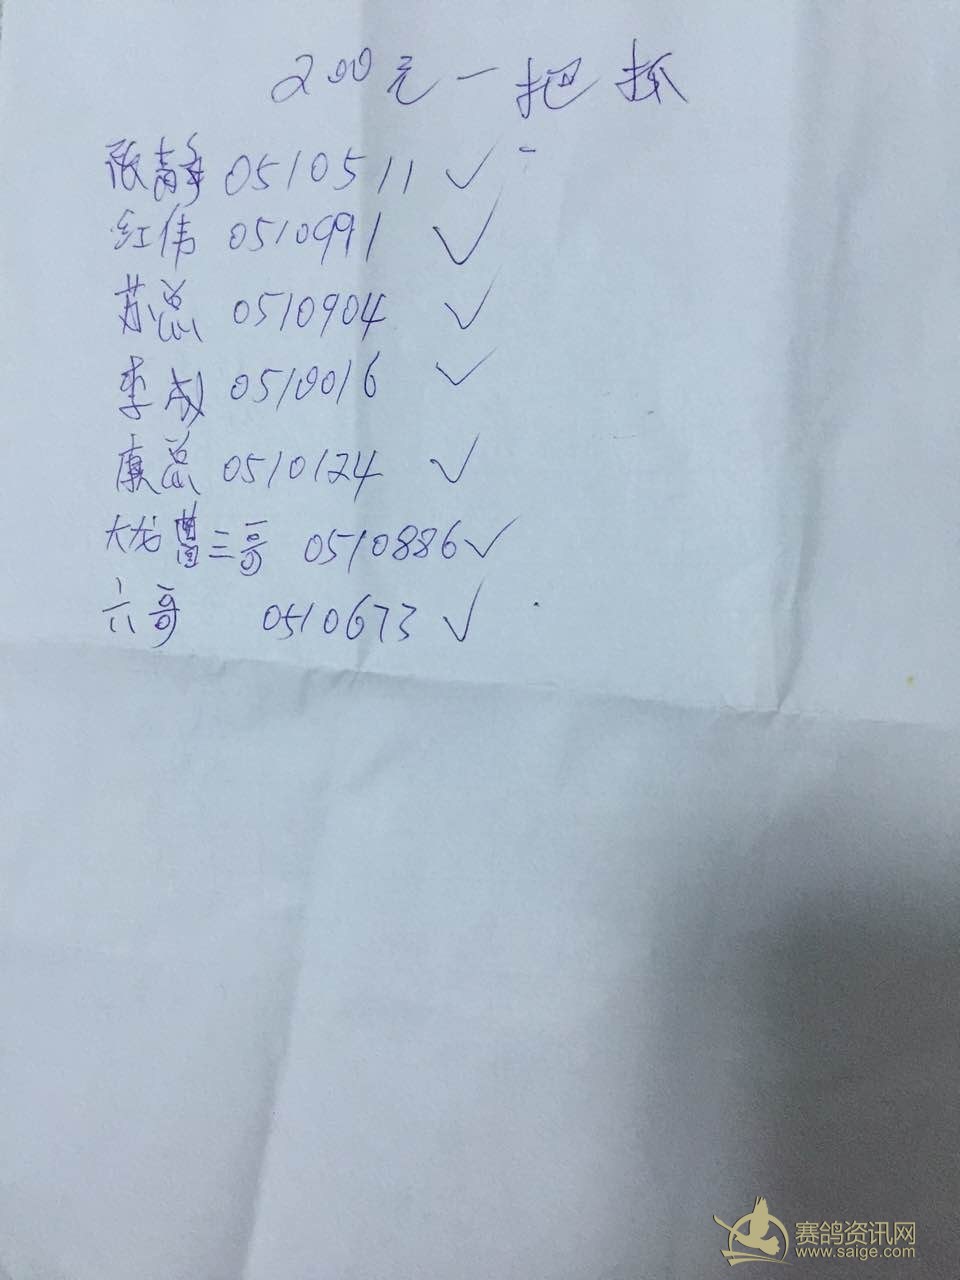 200元一把抓
张静 0510511 ✓
红伟 0510991 ✓
苏总 0510904 ✓
李成 0510016 ✓
康总 0510124 ✓
大龙曹三哥 0510886 ✓
六哥 0510673 ✓
赛鸽资讯网
www.saige.com